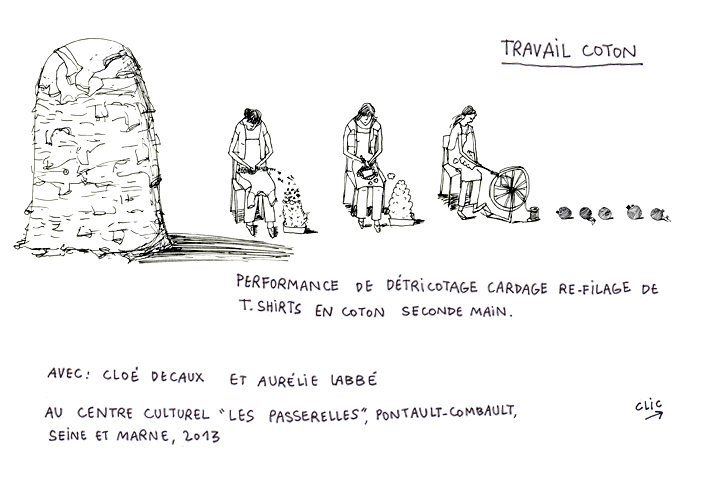 TRAVAIL COTON
PERFORMANCE DE DÉTRICOTAGE CARDAGE RE-FILAGE DE
T.SHIRTS EN COTON SECONDE MAIN.
AVEC: CLOÉ DECAUX ET AURÉLIE LABBÉ
AU CENTRE CULTUREL "LES PASSERELLES", PONTAULT-COMBAULT,
SEINE ET MARNE, 2013
CLIC